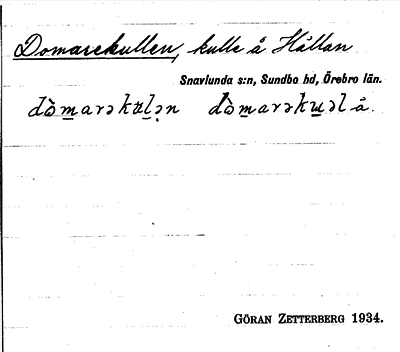 Domarekullen, kulle å Hållan
Snavlunda s:n, Sundbo hd, Örebro län.
dòm̲arəkʊl̲ə̣n dòm̲arəku̲əl å.
GÖRAN ZETTERBERG 1934.